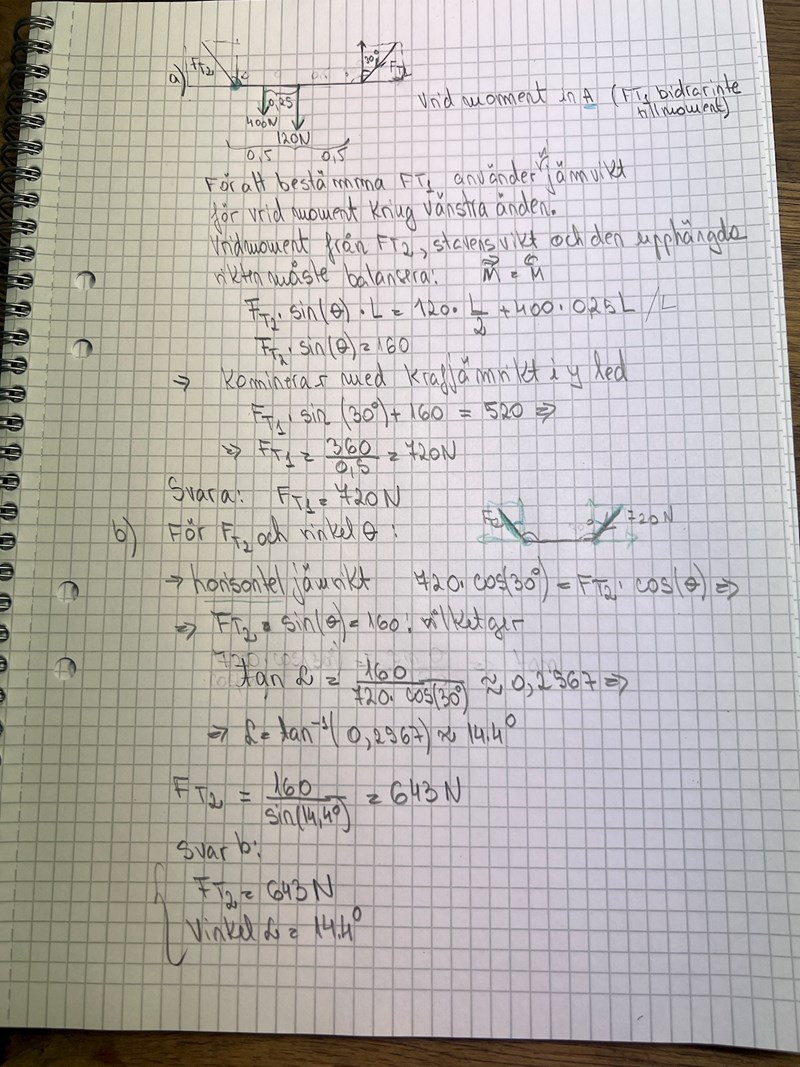 a)
FT2
α
30°
FT1
0,25
400N
120N
0,5 0,5
Vrid moment in A (FT1 bidrar inte
till moment)
För att bestämma FT1 använder vi jämvikt
för vrid moment kring vänstra änden.
Vridmoment från FT2, stavens vikt och den upphängda
vikten måste balansera: M = M
FT2 · sin(θ) · L = 120 · L/2 + 400 · 0,25L /L
FT2 · sin(θ) = 160
⇒ Komineras med krafjämnkt i y led
FT1 · sin (30°) + 160 = 520 ⇒
⇒ FT1 = 360/0,5 = 720N
Svara: FT1 = 720N
b) För FT2 och vinkel θ :
F2 720N
→ horisontel jämnkt 720 · cos(30°) = FT2 · cos(θ) ⇒
⇒ FT2 · sin(θ) = 160 ; vilket ger
tan α = 160/720 · cos(30°) ≈ 0,2567 ⇒
⇒ α = tan⁻¹(0,2567) ≈ 14.4°
FT2 = 160/sin(14,4°) = 643N
Svar b:
FT2 = 643N
Vinkel α = 14.4°